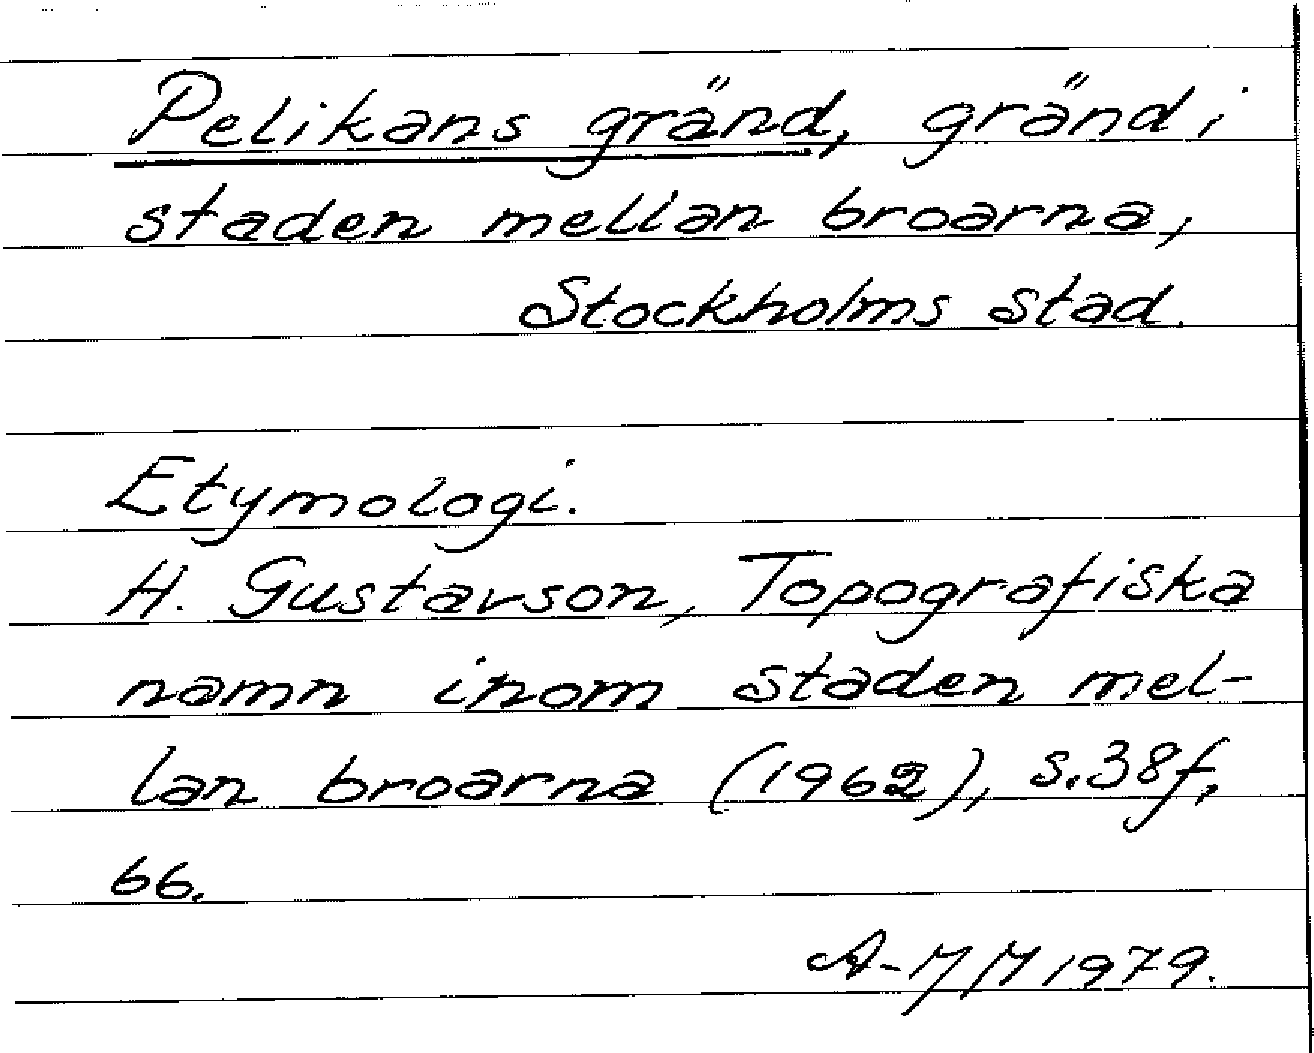 Pelikans gränd, gränd i
staden mellan broarna,
Stockholms stad.
Etymologi.
H. Gustavson, Topografiska
namn inom staden mel-
lan broarna (1962), s. 38 f,
66.
A-M M 1979.